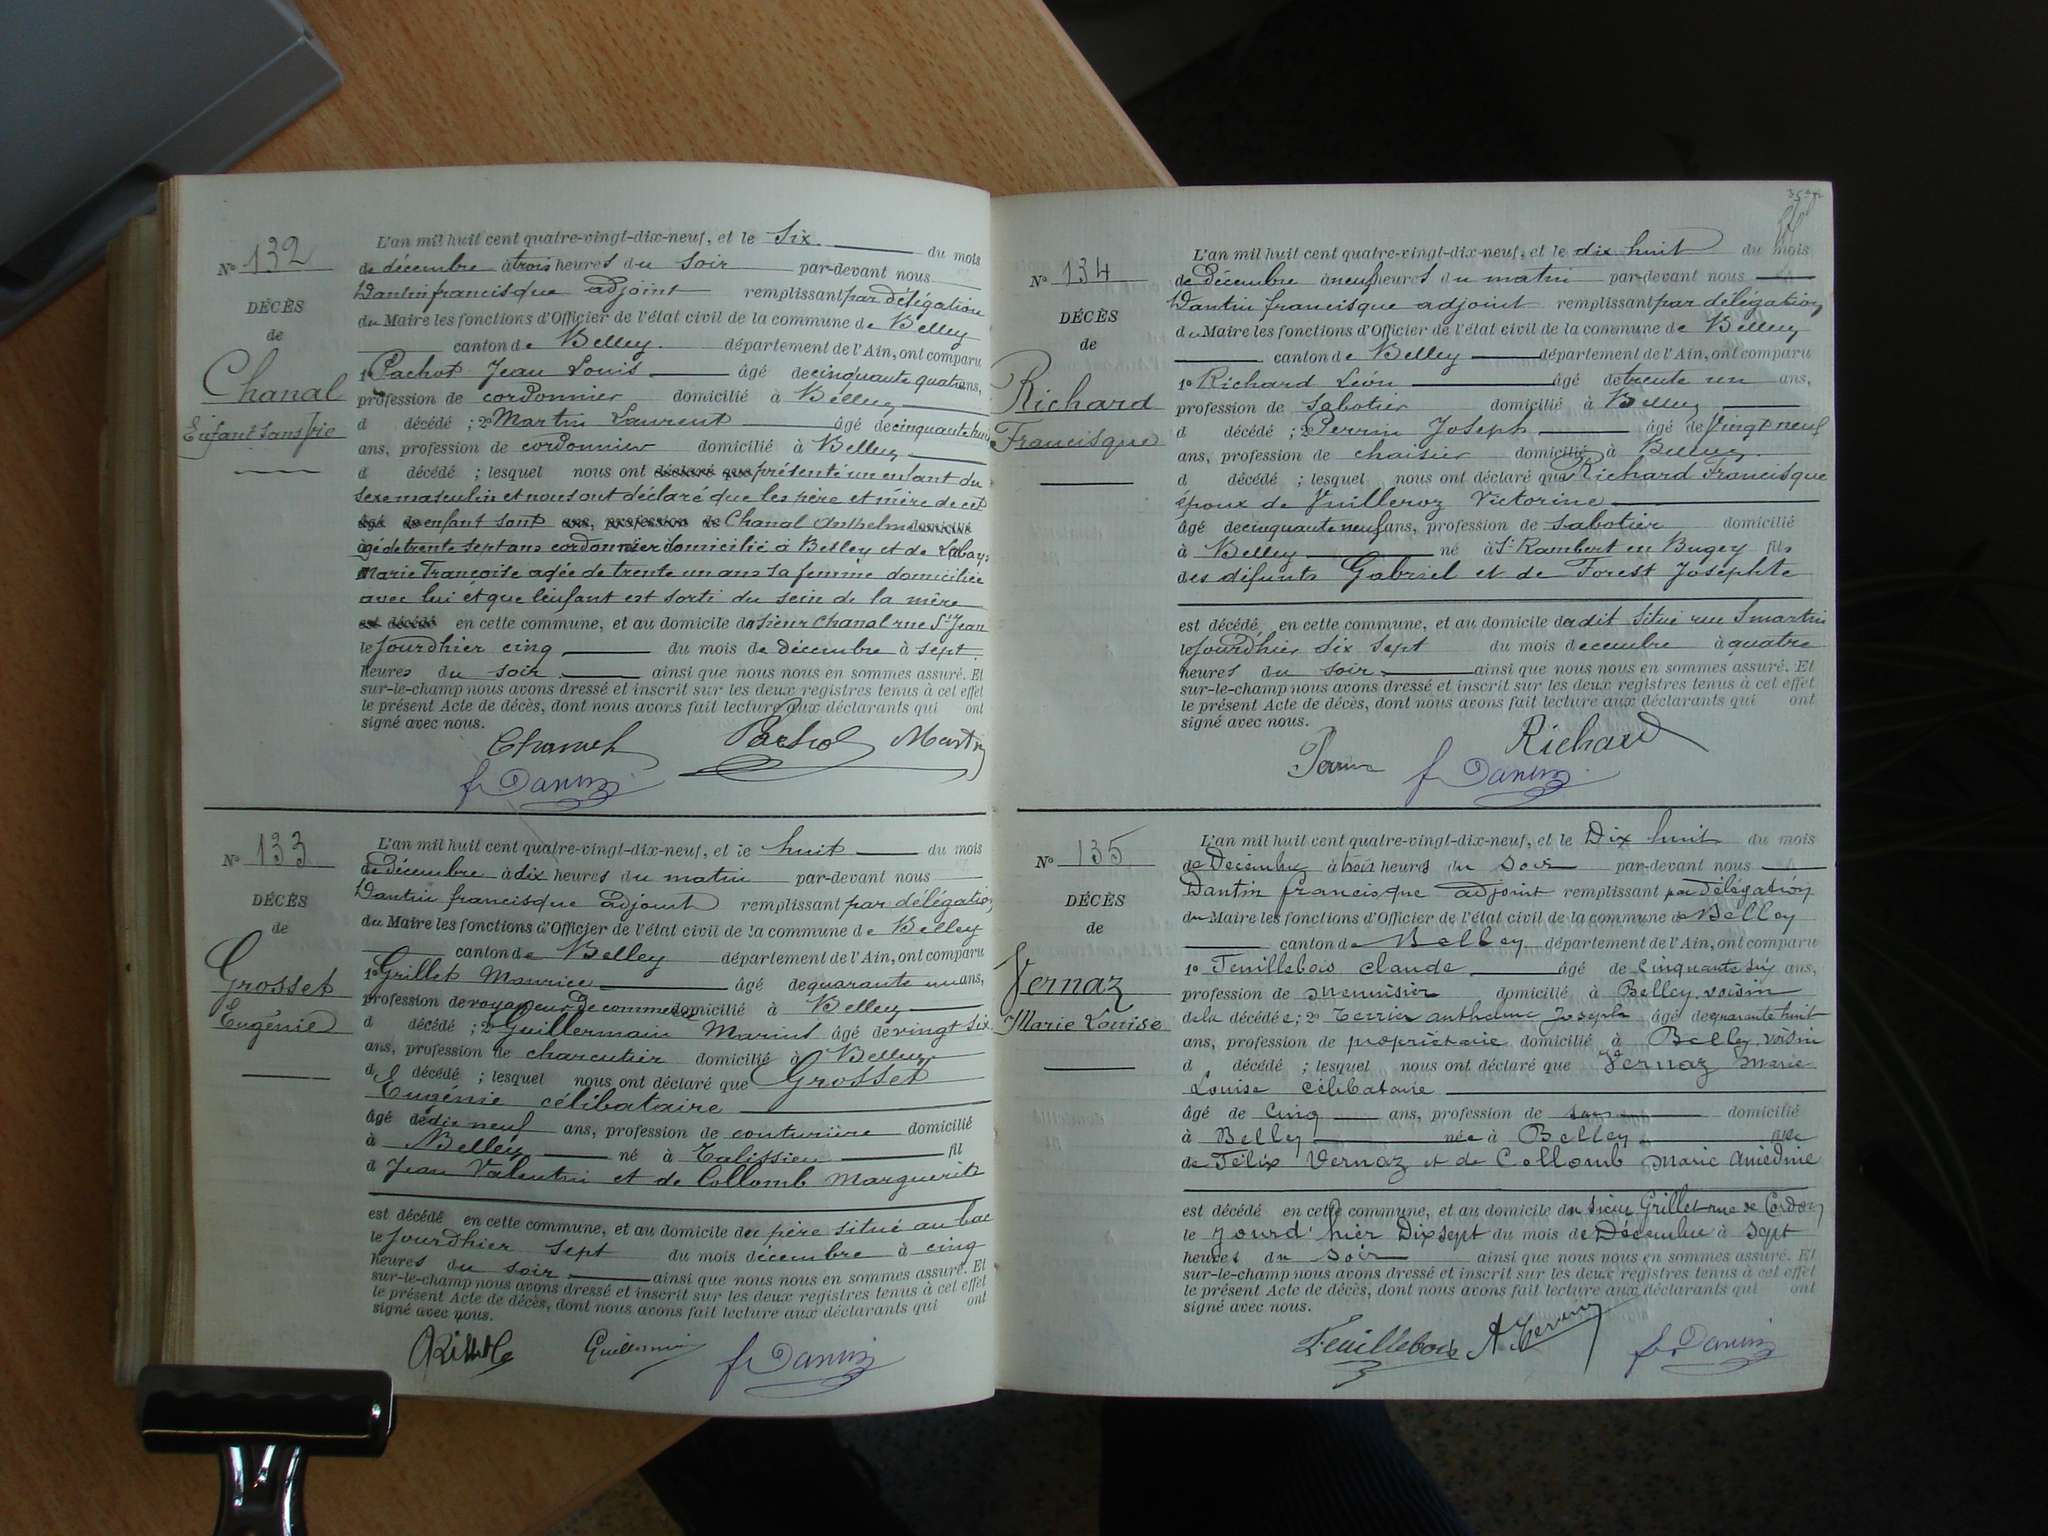 N° 132
DÉCÈS
de
Chanal
Enfant sans vie
L'an mil huit cent quatre-vingt-dix-neuf, et le Six du mois
de décembre à trois heures du soir par-devant nous
Dantin francisque adjoint remplissant par délégation
du Maire les fonctions d'Officier de l'état civil de la commune de Belley
canton de Belley département de l'Ain, ont comparu
1° Pachot Jean Louis âgé de cinquante quatre ans,
profession de cordonnier domicilié à Belley
d décédé ; 2° Martin Laurent âgé de cinquante huit
ans, profession de cordonnier domicilié à Belley
d décédé ; lesquel nous ont déclaré que présenté un enfant du
sexe masculin et nous ont déclaré que les père et mère de cet
âgé de enfant sont ans, profession de Chanal Anthelme domicilié
âgé de trente sept ans cordonnier domicilié à Belley et de Labays
Marie Françoise agée de trente un ans sa femme domiciliée
avec lui et que l'enfant est sorti du sein de la mère
est décédé en cette commune, et au domicile du sieur Chanal rue St Jean
le jourdhier cinq du mois de décembre à sept
heures du soir ainsi que nous nous en sommes assuré. Et
sur-le-champ nous avons dressé et inscrit sur les deux registres tenus à cet effet
le présent Acte de décès, dont nous avons fait lecture aux déclarants qui ont
signé avec nous.
Pachot Martin
f Dantin
N° 133
DÉCÈS
de
Grosset
Eugénie
L'an mil huit cent quatre-vingt-dix-neuf, et le huit du mois
de décembre à dix heures du matin par-devant nous
Dantin francisque adjoint remplissant par délégation
du Maire les fonctions d'Officier de l'état civil de la commune de Belley
canton de Belley département de l'Ain, ont comparu
1° Grillet Maurice âgé de quarante un ans,
profession de voyageur de commerce domicilié à Belley
d décédé ; 2° Guillermain Marius âgé de vingt six
ans, profession de charcutier domicilié à Belley
d décédé ; lesquel nous ont déclaré que Grosset
Eugénie célibataire
âgé de dix neuf ans, profession de couturière domicilié
à Belley né à Talissieu fil
d Jean Valentin et de Collomb Marguerite
est décédé en cette commune, et au domicile du père situé au bac
le jourdhier sept du mois décembre à cinq
heures du soir ainsi que nous nous en sommes assuré. Et
sur-le-champ nous avons dressé et inscrit sur les deux registres tenus à cet effet
le présent Acte de décès, dont nous avons fait lecture aux déclarants qui ont
signé avec nous.
Guillermin f Dantin
N° 134
DÉCÈS
de
Richard
Francisque
L'an mil huit cent quatre-vingt-dix-neuf, et le dix huit du mois
de décembre à neuf heures du matin par-devant nous
Dantin francisque adjoint remplissant par délégation
du Maire les fonctions d'Officier de l'état civil de la commune de Belley
canton de Belley département de l'Ain, ont comparu
1° Richard Léon âgé de trente un ans,
profession de sabotier domicilié à Belley
d décédé ; 2° Perrin Joseph âgé de Vingt neuf
ans, profession de chaisier domicilié à Belley
d décédé ; lesquel nous ont déclaré que Richard Francisque
époux de Vuilleroz Victorine
âgé de cinquante neuf ans, profession de sabotier domicilié
à Belley né à St Rambert en Bugey fils
des défunts Gabriel et de Forest Josephte
est décédé en cette commune, et au domicile dudit situé rue S martin
le jourdhier dix sept du mois decembre à quatre
heures du soir ainsi que nous nous en sommes assuré. Et
sur-le-champ nous avons dressé et inscrit sur les deux registres tenus à cet effet
le présent Acte de décès, dont nous avons fait lecture aux déclarants qui ont
signé avec nous.
Perrin Richard
f Dantin
N° 135
DÉCÈS
de
Vernaz
Marie Louise
L'an mil huit cent quatre-vingt-dix-neuf, et le Dix huit du mois
de Décembre à trois heures du soir par-devant nous
Dantin francisque adjoint remplissant par délégation
du Maire les fonctions d'Officier de l'état civil de la commune de Belley
canton de Belley département de l'Ain, ont comparu
1° Feuillebois Claude âgé de cinquante six ans,
profession de menuisier domicilié à Belley voisin
de la décédée ; 2° Terrier anthelme Joseph âgé de quarante huit
ans, profession de propriétaire domicilié à Belley, voisin
d décédé ; lesquel nous ont déclaré que Vernaz Marie
Louise célibataire
âgé de cinq ans, profession de sans domicilié
à Belley née à Belley fille
de Félix Vernaz et de Collomb Marie
est décédé en cette commune, et au domicile du sieur Grillet rue de Cordon
le jourd'hier Dix sept du mois de Décembre à sept
heures du soir ainsi que nous nous en sommes assuré. Et
sur-le-champ nous avons dressé et inscrit sur les deux registres tenus à cet effet
le présent Acte de décès, dont nous avons fait lecture aux déclarants qui ont
signé avec nous.
Feuillebois A Terrier f Dantin